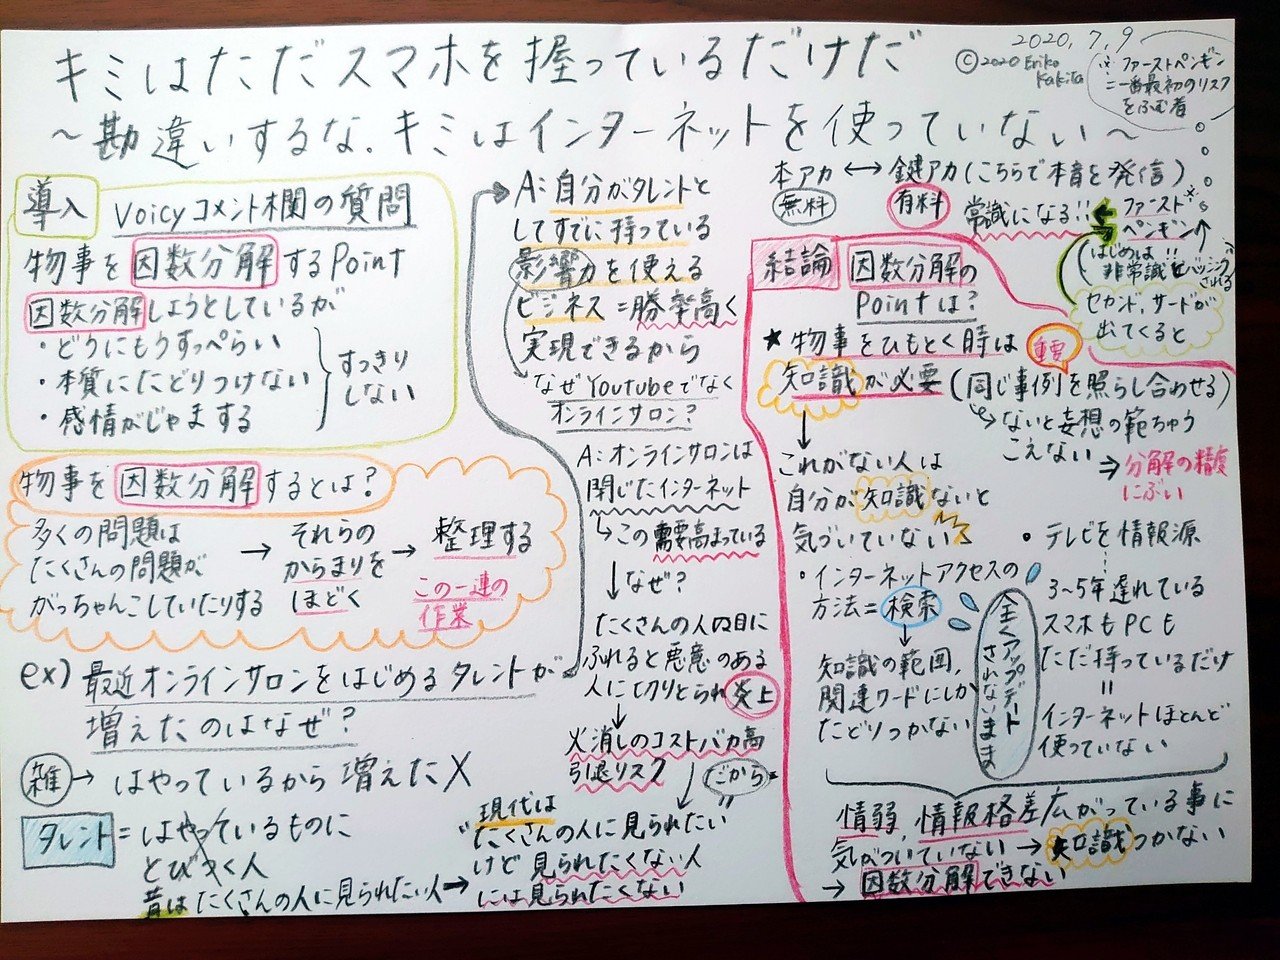 キミはただスマホを握っているだけだ
〜勘違いするな.キミはインターネットを使っていない〜
2020,7,9
©2020 Eriko Kakita
※ファーストペンギン
=一番最初のリスク
をふむ者
導入
Voicyコメント欄の質問
物事を因数分解するPoint
因数分解しようとしているが
・どうにもうすっぺらい
・本質にたどりつけない
・感情がじゃまする
すっきり
しない
物事を因数分解するとは?
多くの問題は
たくさんの問題が
がっちゃんこしていたりする
→
それらの
からまりを
ほどく
→
整理する
この一連の
作業
ex) 最近オンラインサロンをはじめるタレントが
増えたのはなぜ?
雑→はやっているから増えた X
タレント=はやっているものに
とびつく人
昔はたくさんの人に見られたい人→
現代は
たくさんの人に見られたい
けど見られたくない人
には見られたくない
A:自分がタレントと
してすでに持っている
影響力を使える
ビジネス=勝率高く
実現できるから
なぜYoutubeでなく
オンラインサロン?
A:オンラインサロンは
閉じたインターネット
↳この需要高まっている
↓なぜ?
たくさんの人の目に
ふれると悪意のある
人に切りとられ炎上
↓
火消しのコストバカ高
引退リスク
だから
本アカ⟷鍵アカ(こちらで本音を発信)
無料
有料
常識になる!!
←ファースト※
ペンギン
(はじめは!!
非常識とバッシングされる)
セカンド,サードが
出てくると
結論
因数分解の
Pointは?
★物事をひもとく時は
重要
知識が必要(同じ事例を照らし合わせる)
ないと妄想の範ちゅう
こえない
⇒分解の精度
にぶい
↓
これがない人は
自分が知識ないと
気づいていない
・インターネットアクセスの
方法=検索
↓
知識の範囲,
関連ワードにしか
たどりつかない
全くアップデート
されないまま
・テレビを情報源
3〜5年遅れている
スマホもPCも
ただ持っているだけ
=
インターネットほとんど
使っていない
情弱,情報格差広がっている事に
気がついていない→知識つかない
→因数分解できない